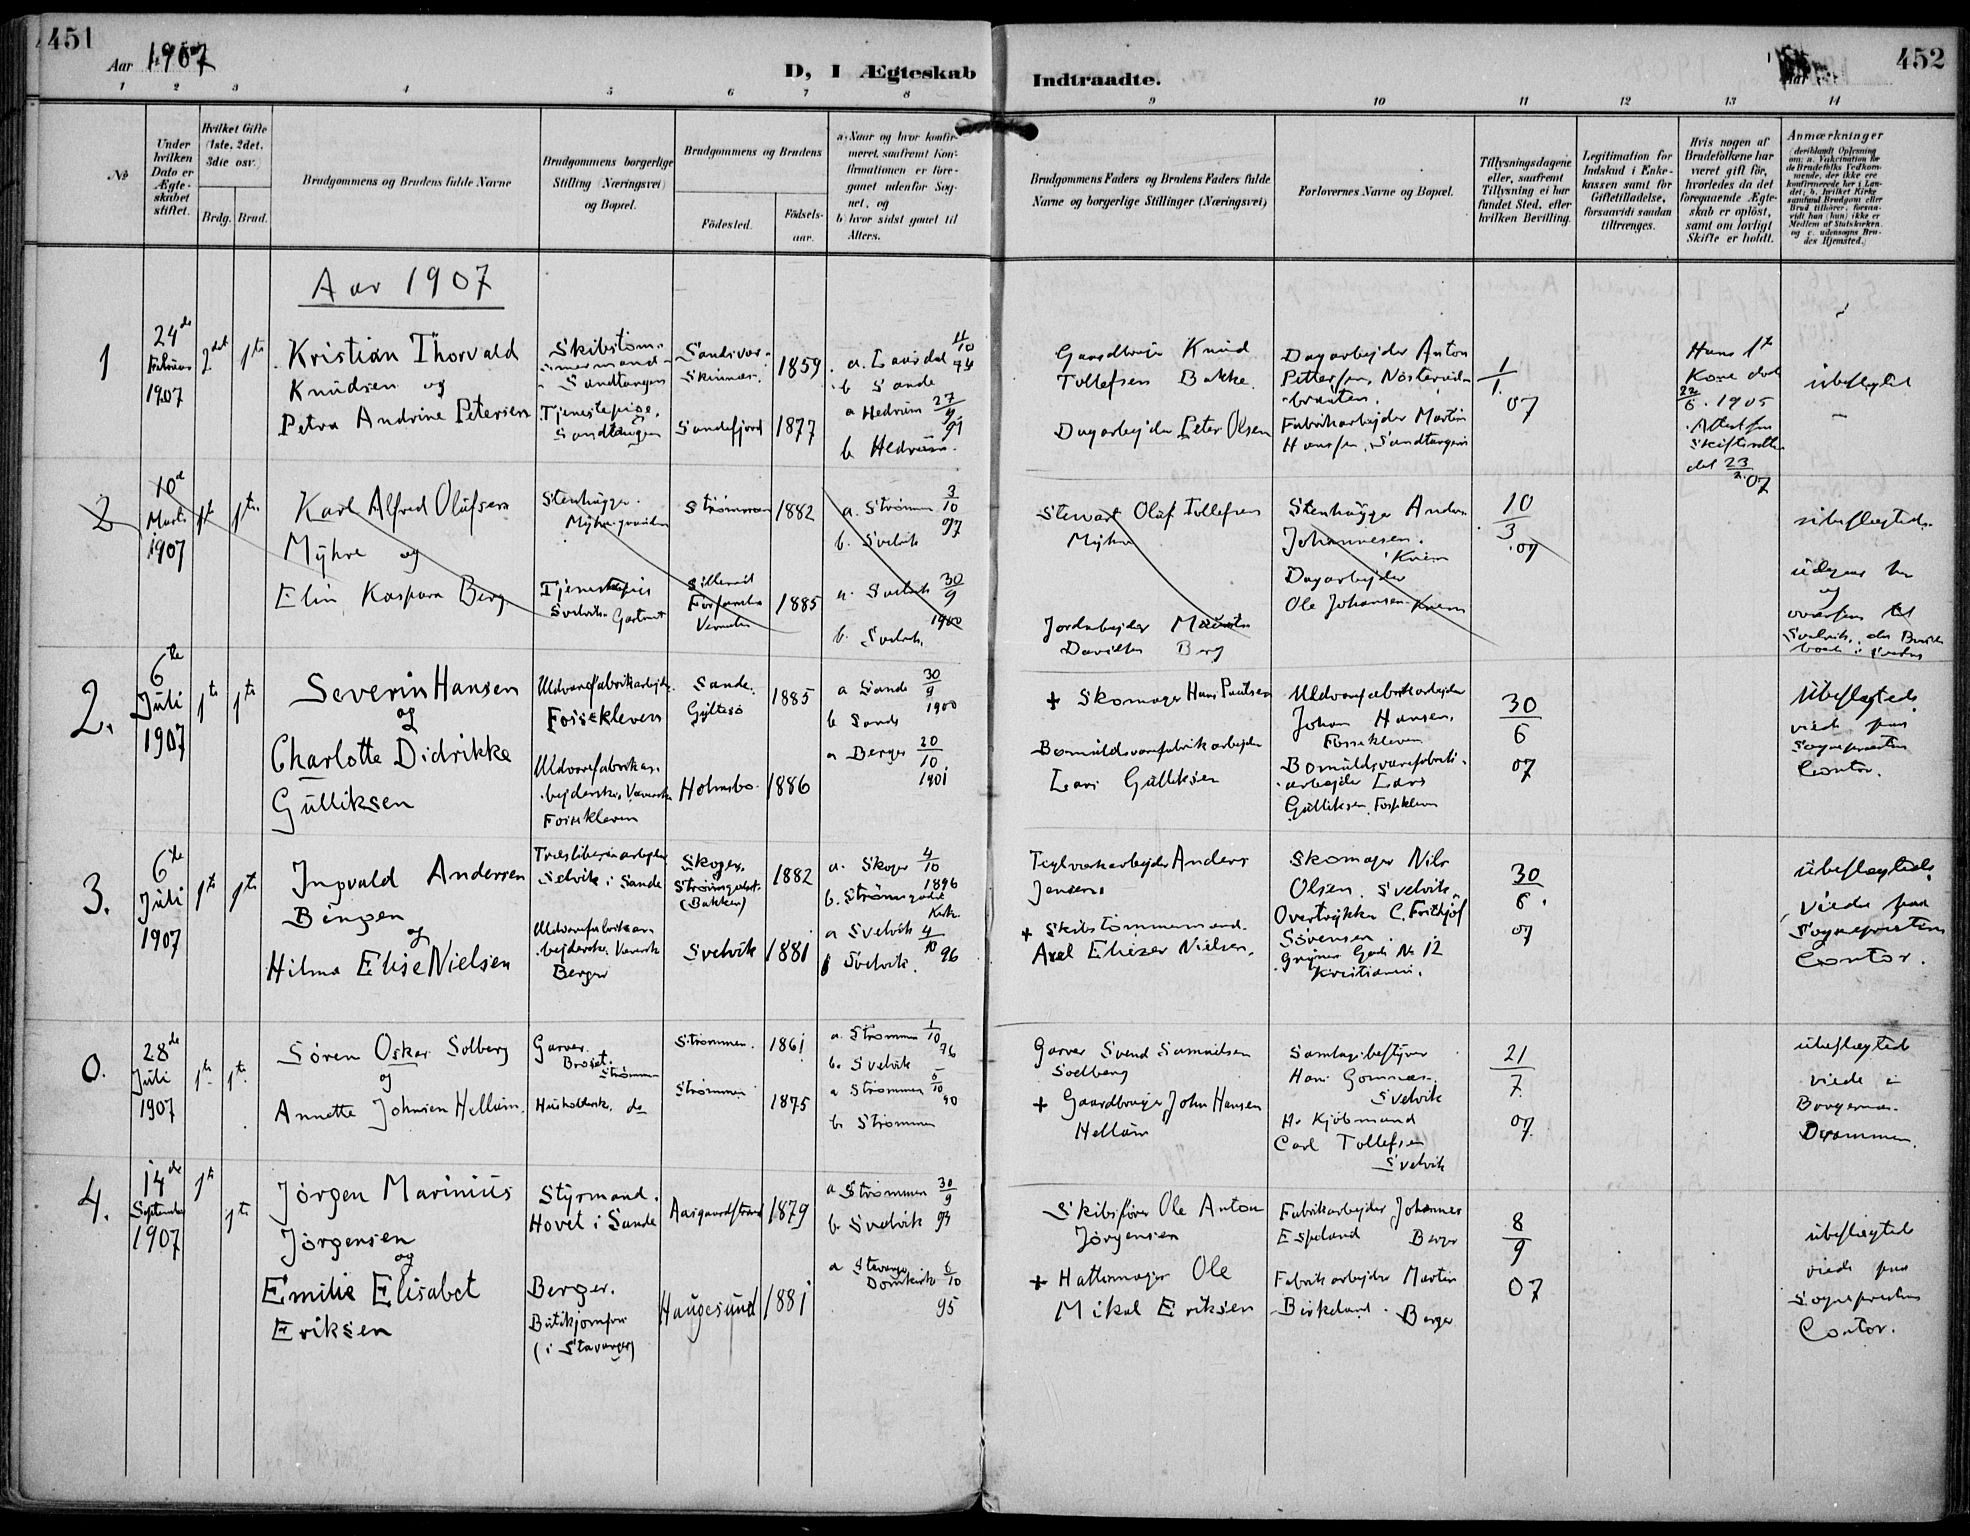 451
Aar 1907
D, I Ægteskab
Indtraadte.
452
1 2 3 4 5 6 7 8 9 10 11 12 13 14
No
Under hvilken Dato er Ægteskabet stiftet.
Hvilket Gifte (1ste, 2det, 3die osv.)
Brdg. Brud.
Brudgommens og Brudens fulde Navne
Brudgommens borgerlige Stilling (Næringsvei) og Bopæl.
Brudgommens og Brudens
Fødested.
Fødselsaar.
a) Naar og hvor konfirmeret, saafremt Konfirmationen er foregaaet udenfor Sognet, og
b) hvor sidst gaaet til Alters.
Brudgommens Faders og Brudens Faders fulde Navne og borgerlige Stillinger (Næringsvei)
Forlovernes Navne og Bopæl.
Tillysningsdagene eller, saafremt Tillysning ei har fundet Sted, efter hvilken Bevilling.
Legitimation for Indskud i Enkekassen samt for Giftetilladelse, forsaavidt saadan tiltrænges.
Hvis nogen af Brudefolkene har været gift før, hvorledes da det foregaaende Ægteskab er opløst, samt om lovligt Skifte er holdt.
Anmærkninger
Aar 1907
1
24de
Februar
1907
2det 1te
Kristian Thorvald
Knudsen og
Petra Andrine Petersen
Skibstømmermand
Sandtangen
Tjenestepige,
Sandtangen
1859
Sandefjord 1877
a. Laurdal 4/10 74
b Sande
a Hedrum 27/9 91
b Hedrum.
Gaardbruger Knud
Tollefsen Bakke.
Dagarbejder Peter Olsen
Dagarbejder Anton
Fabrikarbejder Martin
Hansen, Sandtangen
1/1 07
Hans 1te
Kone død
22/6. 1905
Attest fra
Skifteretten
det 23/2 07
ubeslægted
2
10de
Marts
1907
1te 1te
Karl Alfred Olufsen
Myhre og
Elin Kaspara Berg
Stenhugger.
Tjenestepige
Svelvik
Strømmen 1882
1885
a. Strømm 3/10 97
b. Svelvik
a. Svelvik 30/9 1900
b. Svelvik.
Stewart Oluf Tollefsen
Myhre
Jordarbejder
Berg
Stenhugger Anders
Johannesen.
Dagarbejder
Ole Johansen
10/3 07
ubeslægtede.
udgaar her
og
overføres til
Svelvik, da
2.
6te
Juli
1907
1te 1te
Severin Hansen
og
Charlotte Didrikke
Gulliksen
Uldvarefabrikarbejder.
Fossekleven
Uldvarefabrikarbejderske, Væverske
Fossekleven
Sande.
1885
Holmsbo. 1886
a Sande 30/9 1900
b Sande
a Berger 20/10 1901
+ Skomager Hans Paulsen
Bomuldsvarefabrikarbejder
Lars Gulliksen
Uldvarefabrikarbejder
Johan Hansen.
Fossekleven
Bomuldsvarefabrikarbejder Lars
Gulliksen Fossekleven
30/6 07
Ubeslægtede.
viede paa
Sognepresten
Contor.
3.
6te
Juli
1907
1te 1te
Ingvald Andersen
Bingen
og
Hilma Elise Nielsen
Træsliberiarbejder
Selvik i Sande
Uldvarefabrikarbejderske, Væverske
Berger
Skoger,
(Bakken)
1882
Svelvik 1881
a. Skoger 4/10 1896
b. Strømsgodset
Kirke.
a Svelvik 4/10 96
b Svelvik.
Teglværkarbejder Anders
Jensen
+ Skibstømmermand.
Axel Eliezer Nielsen.
Skomager Nils
Olsen. Svelvik
C. Frithjof
Sørensen
Grønne Gade No 12
Kristiania.
30/6. 07
ubeslægtede.
Viede paa
Sognepresten
Contor.
0.
28de
Juli
1907
1te 1te.
Søren Oskar Solberg
og
Annette Johnsen Hellum.
Garver.
Strømmen
Husholderske. do
Strømmen. 1861
Strømmen 1875
a. Strømmen 1/10 76
b. Svelvik
a Strømmen 5/10 90
b. Strømmen
Garver Svend Samuelsen
Soelberg
+ Gaardbruger John Hansen
Hellum
Samlagsbestyrer
Hans Gomnæs.
Svelvik
Hr. Kjøbmand
Carl Tollefsen
Svelvik
21/7. 07.
ubeslægted
viede i
Bragernæs.
Drammen.
4.
14de
September
1907
1te
1te
Jørgen Marinius
Jørgensen
og
Emilie Elisabet
Eriksen
Styrmand.
Hovet i Sande
Berger.
Butikjomfru
(i Stavanger)
Aasgaardstrand 1879
Haugesund 1881
a Strømmen 30/9 94
b. Svelvik
a Stavanger
Domkirke 6/10 95
Skibsfører Ole Anton
Jørgensen
+ Hattemager Ole
Mikal Eriksen
Fabrikarbejder Johannes
Espeland Berger
Fabrikarbejder Martin
Birkeland. Berger
8/9 07
ubeslægted
viede paa
Sognepresten
Contor.